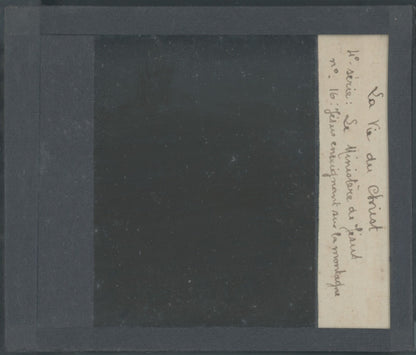 La Vie du Christ
4e série : Le Ministère de Jésus
n°. 16 : Jésus enseignant sur la montagne